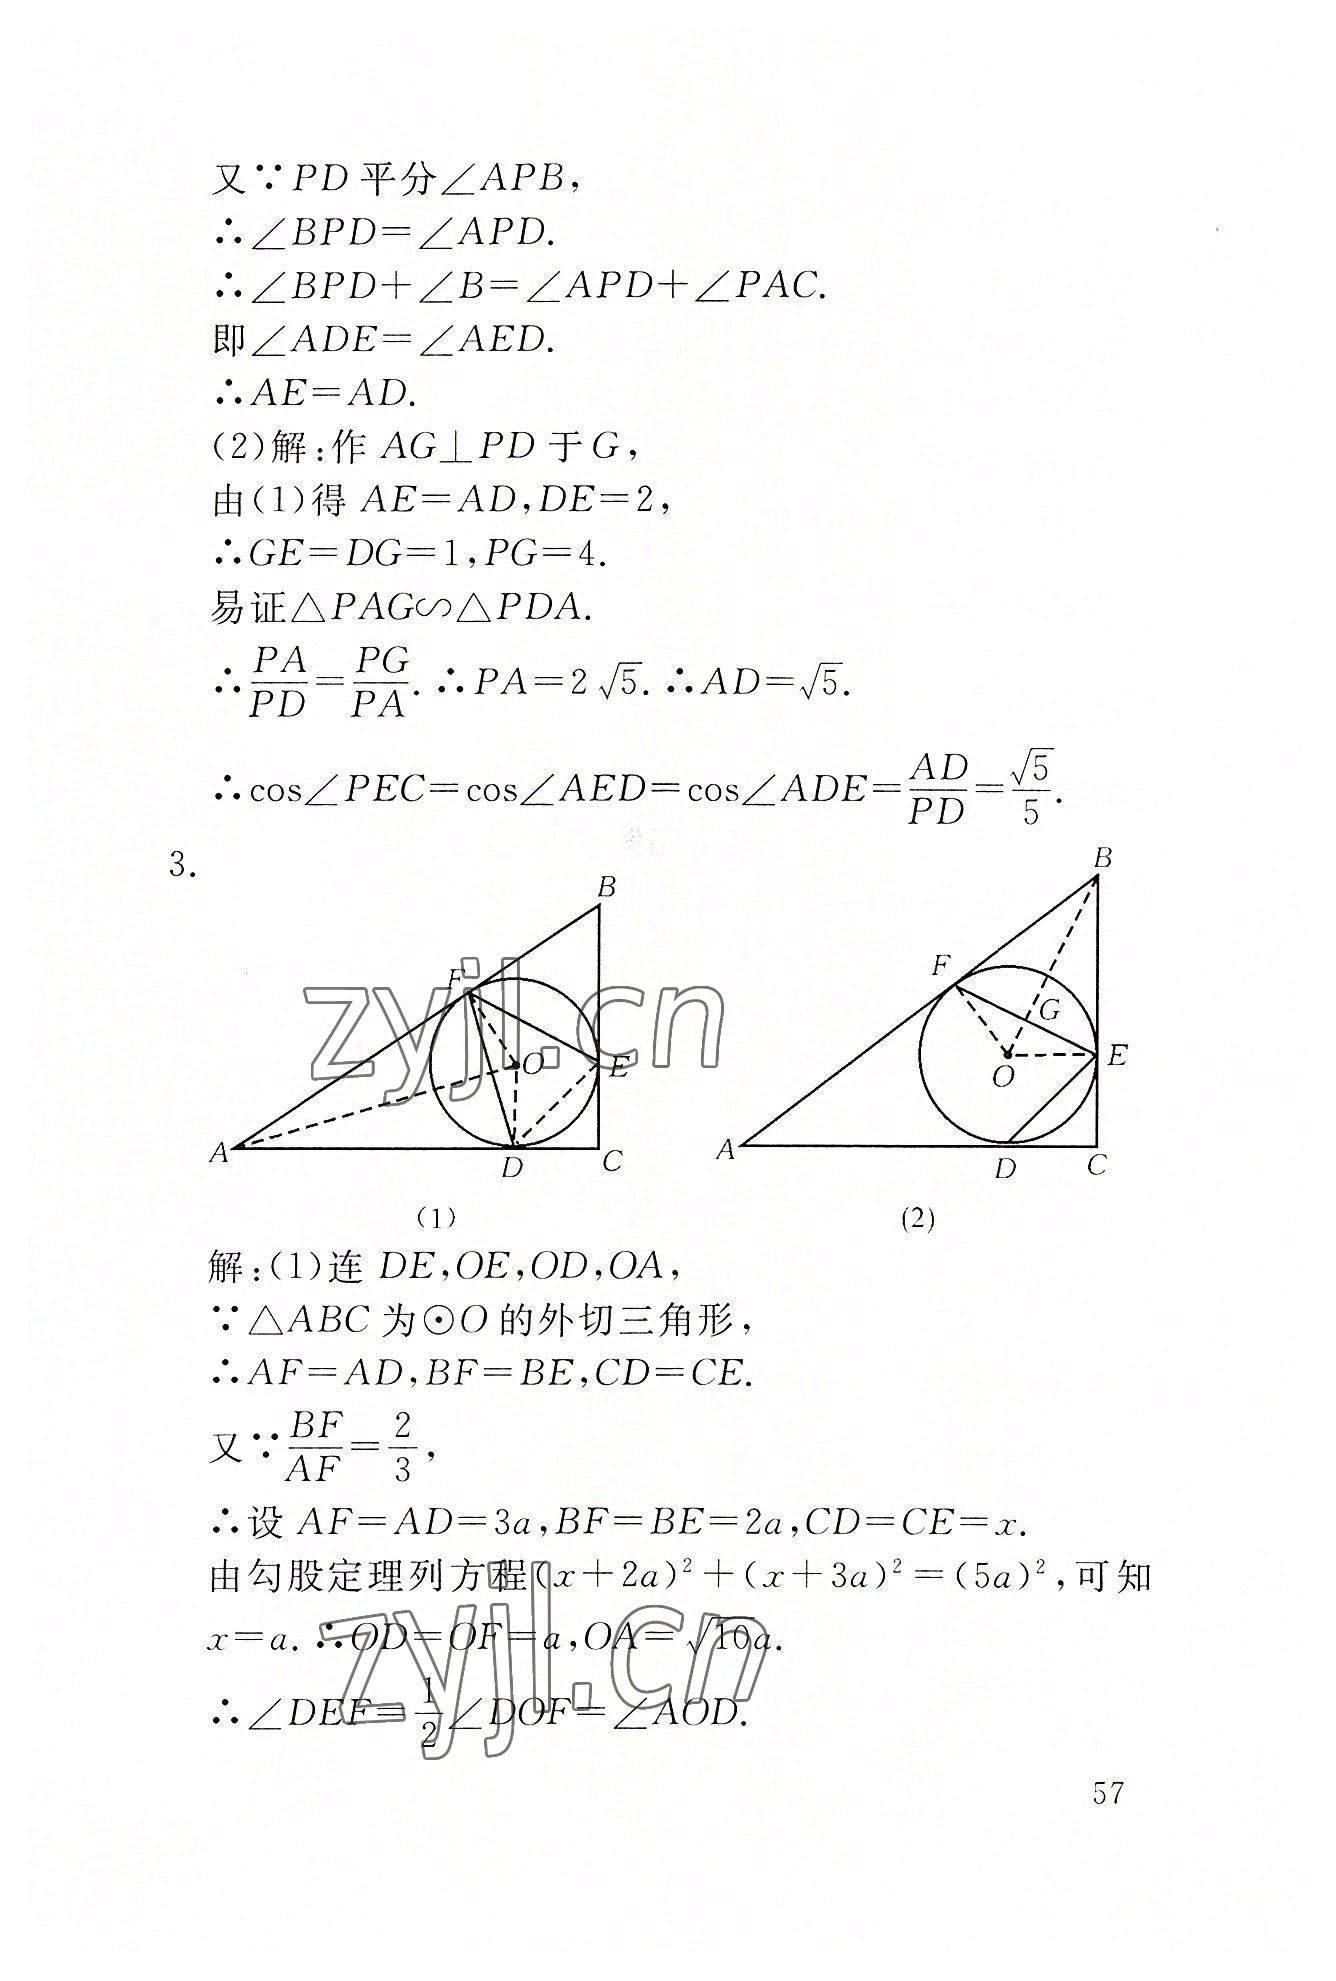 又∵PD平分∠APB,
∴∠BPD=∠APD.
∴∠BPD+∠B=∠APD+∠PAC.
即∠ADE=∠AED.
∴AE=AD.
(2)解:作 AG⊥PD于G,
由(1)得 AE=AD,DE=2,
∴GE=DG=1,PG=4.
易证△PAG∽△PDA.
∴PA/PD=PG/PA.∴PA=2√5.∴AD=√5.
∴cos∠PEC=cos∠AED=cos∠ADE=AD/PD=√5/5.
3.
B
F
O
E
A
D
C
(1)
B
F
G
E
O
A
D
C
(2)
zyjl.cn
解:(1)连 DE,OE,OD,OA,
∵△ABC为⊙O的外切三角形,
∴AF=AD,BF=BE,CD=CE.
又∵BF/AF=2/3,
∴设 AF=AD=3a,BF=BE=2a,CD=CE=x.
由勾股定理列方程(x+2a)²+(x+3a)²=(5a)²,可知
x=a.∴OD=OF=a,OA=√10a.
∴∠DEF=1/2∠DOF=∠AOD.
zyjl.cn
57